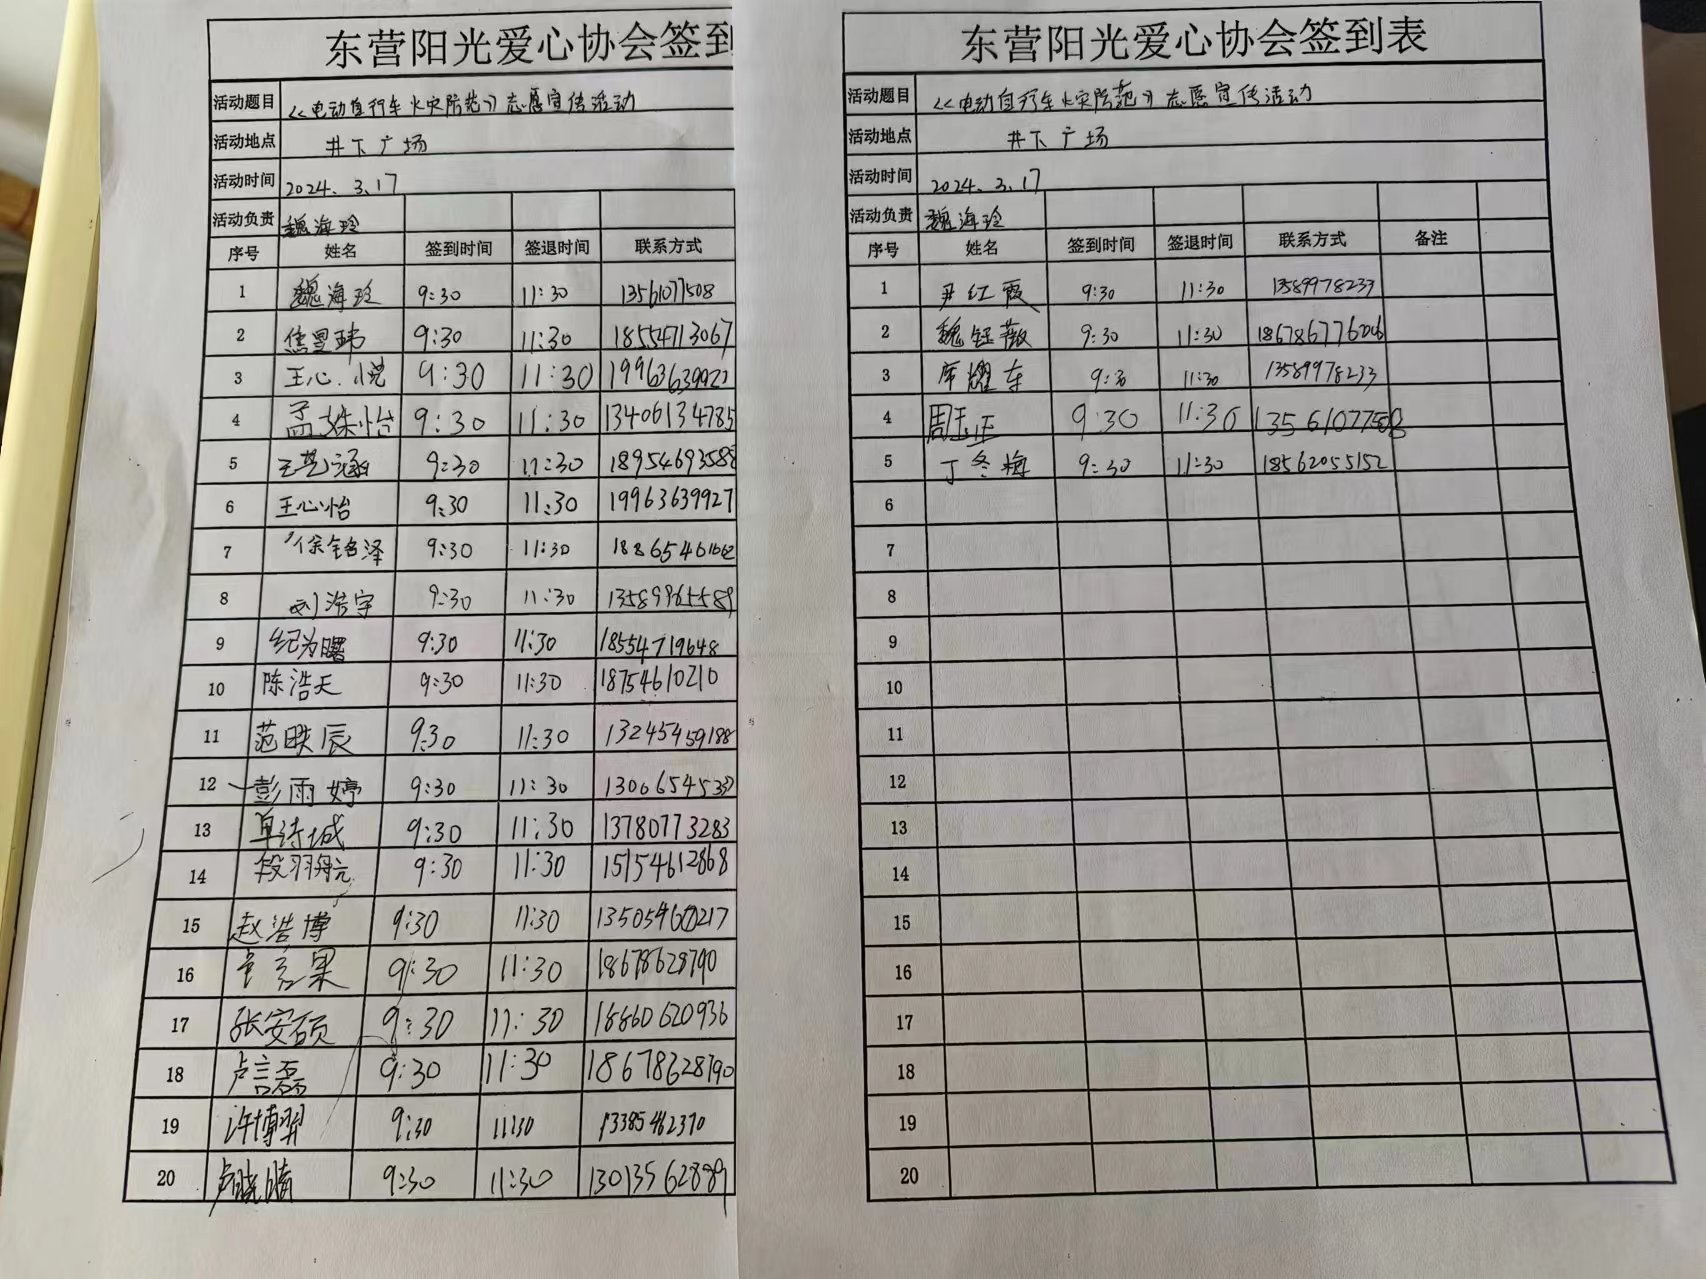 东营阳光爱心协会签到
活动题目 <<电动自行车火灾防范》志愿宣传活动
活动地点 井下广场
活动时间 2024.3.17
活动负责 魏海玲
序号 姓名 签到时间 签退时间 联系方式
1 魏海玲 9:30 11:30 13561077508
2 焦昱玮 9:30 11:30 18554713067
3 王心悦 9:30 11:30 19963639927
4 孟姝怡 9:30 11:30 13406134785
5 王艺涵 9:30 11:30 18954693588
6 王心怡 9:30 11:30 19963639927
7 徐铭泽 9:30 11:30
8 刘浩宇 9:30 11:30 13589965589
9 纪为曙 9:30 11:30 18554719648
10 陈浩天 9:30 11:30 18754610210
11 范映辰 9:30 11:30 13245459188
12 彭雨婷 9:30 11:30
13 单诗城 9:30 11:30 13780773283
14 9:30 11:30 15154612868
15 赵浩博 9:30 11:30
16 9:30 11:30 18678628790
17 张安硕 9:30 11:30 18860620936
18 卢言磊 9:30 11:30 18678628790
19 许博羿 9:30 11:30 13385462370
20 卢晓晴 9:30 11:30 13013562889
东营阳光爱心协会签到表
活动题目 <<电动自行车火灾防范》志愿宣传活动
活动地点 井下广场
活动时间 2024.3.17
活动负责 魏海玲
序号 姓名 签到时间 签退时间 联系方式 备注
1 尹红霞 9:30 11:30 13589978233
2 魏钰薇 9:30 11:30
3 席耀东 9:30 11:30 13589978233
4 周玉正 9:30 11:30
5 丁冬梅 9:30 11:30 18562055152
6
7
8
9
10
11
12
13
14
15
16
17
18
19
20